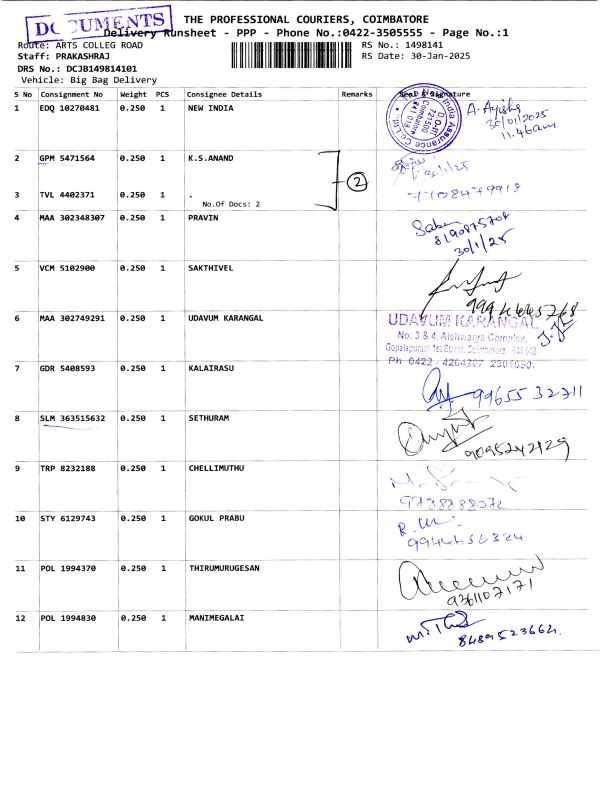 DOCUMENTS
THE PROFESSIONAL COURIERS, COIMBATORE
Delivery Runsheet - PPP - Phone No.:0422-3505555 - Page No.:1
Route: ARTS COLLEG ROAD
RS No.: 1498141
Staff: PRAKASHRAJ
RS Date: 30-Jan-2025
DRS No.: DCJB149814101
Vehicle: Big Bag Delivery
S No Consignment No Weight PCS Consignee Details Remarks Seal & Signature
1 EDQ 10270481 0.250 1 NEW INDIA
A. Ayisha
30/01/2025
11.46am
2 GPM 5471564 0.250 1 K.S.ANAND
30/1/25
2
3 TVL 4402371 0.250 1 .
7708479918
No.Of Docs: 2
4 MAA 302348307 0.250 1 PRAVIN
30/1/25
5 VCM 5102900 0.250 1 SAKTHIVEL
6 MAA 302749291 0.250 1 UDAVUM KARANGAL
UDAVUM KARANGAL
No. 3 & 4, Aishwarya Complex,
Gopalapuram 1st Street, Coimbatore
Ph 0422
7 GDR 5408593 0.250 1 KALAIRASU
99655 32711
8 SLM 363515632 0.250 1 SETHURAM
9095242129
9 TRP 8232188 0.250 1 CHELLIMUTHU
10 STY 6129743 0.250 1 GOKUL PRABU
11 POL 1994370 0.250 1 THIRUMURUGESAN
9361107171
12 POL 1994830 0.250 1 MANIMEGALAI
8489523664.